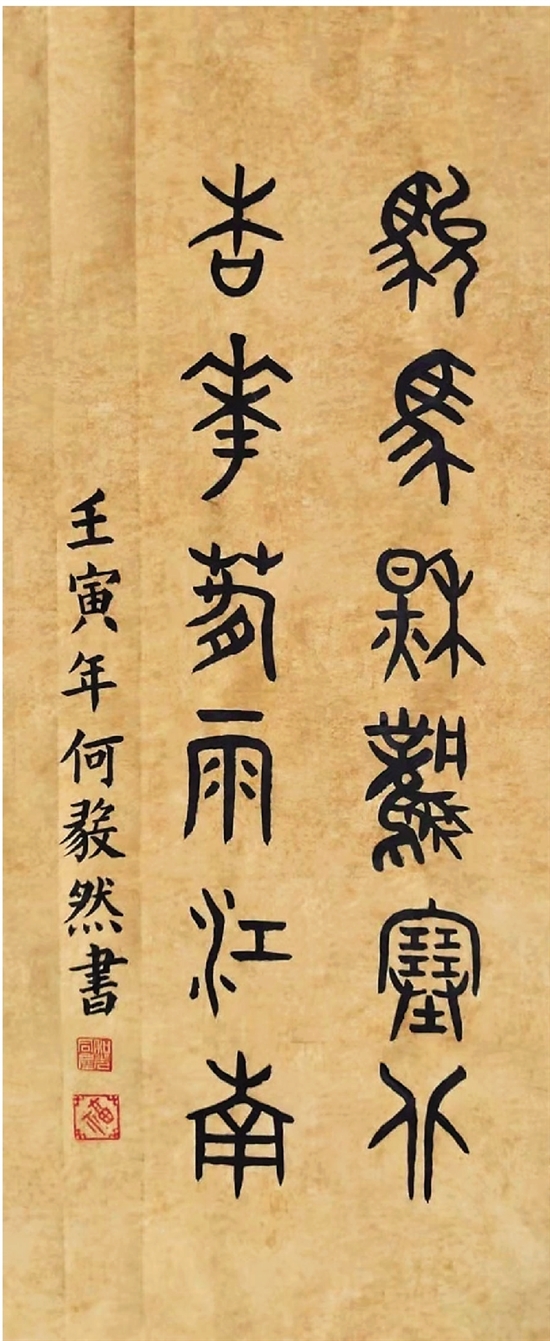 駿馬秋風塞北
杏華春雨江南
壬寅年何毅然書
福